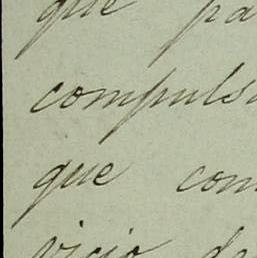 que pa
compuls
que com
vicio de